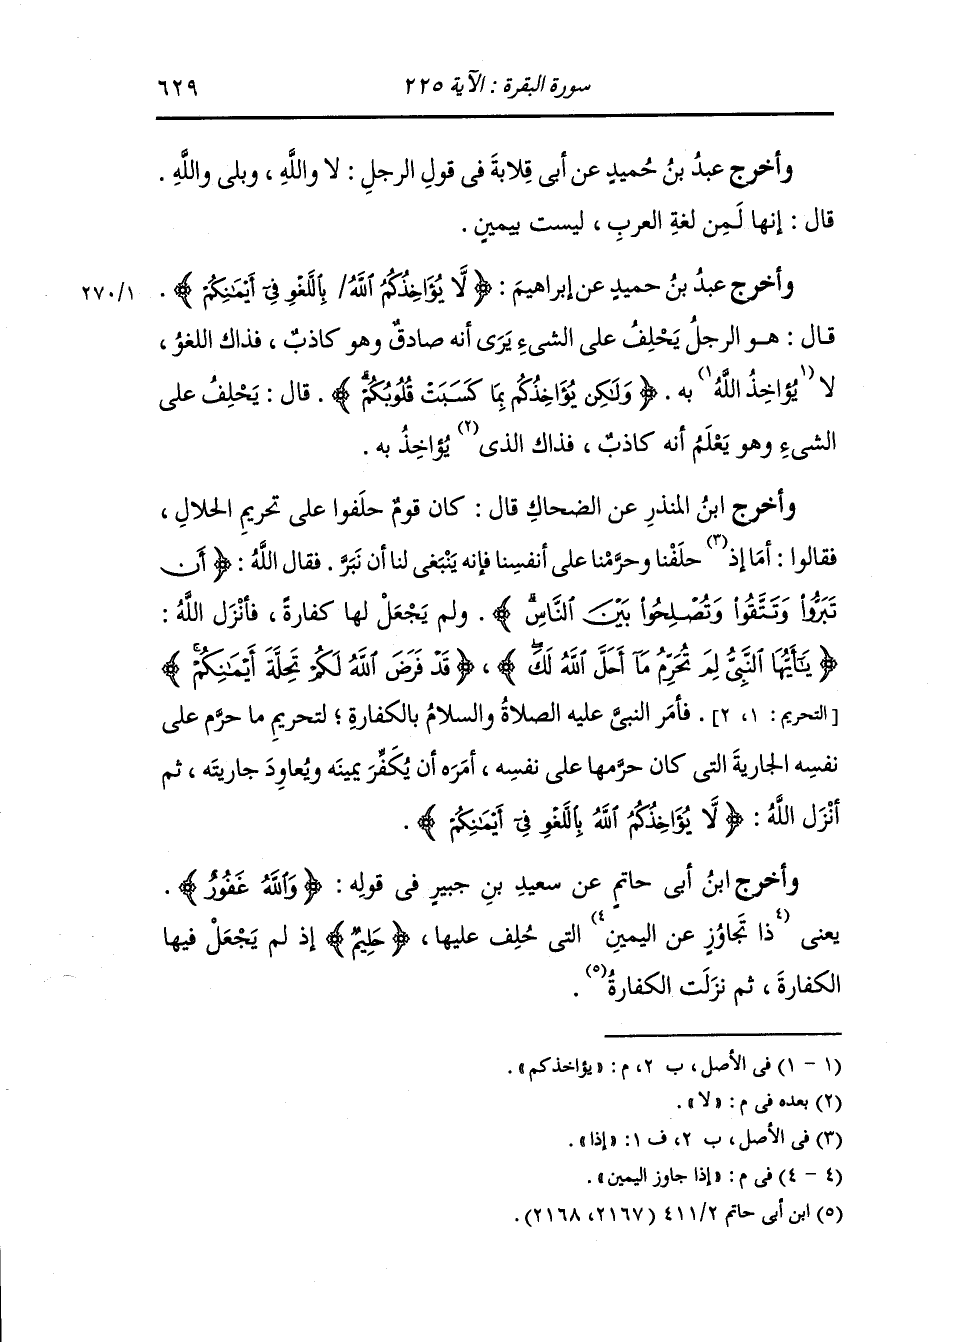 سورة البقرة : الآية ٢٢٥ ٦٢٩
وأخرج عبدُ بنُ حُميدٍ عن أبى قِلابةَ فى قولِ الرجلِ : لا واللَّهِ ، وبلى واللَّهِ .
قال : إنها لَمِن لغةِ العربِ ، ليست بيمينٍ .
وأخرج عبدُ بنُ حميدٍ عن إبراهيمَ : ﴿ لَّا يُؤَاخِذُكُمُ ٱللَّهُ/ بِٱللَّغْوِ فِىٓ أَيْمَٰنِكُمْ ﴾ . ٢٧٠/١
قال : هو الرجلُ يَحْلِفُ على الشىءِ يَرَى أنه صادقٌ وهو كاذبٌ ، فذاك اللغوُ ،
لا (١)يُؤاخِذُ اللَّهُ(١) به . ﴿ وَلَٰكِن يُؤَاخِذُكُم بِمَا كَسَبَتْ قُلُوبُكُمْ ﴾ . قال : يَحْلِفُ على
الشىءِ وهو يَعْلَمُ أنه كاذبٌ ، فذاك الذى(٢) يُؤاخِذُ به .
وأخرج ابنُ المنذرِ عن الضحاكِ قال : كان قومٌ حلَفوا على تحريمِ الحلالِ ،
فقالوا : أمَا إذ(٣) حلَفْنا وحرَّمْنا على أنفسِنا فإنه يَنْبَغى لنا أن نَبَرَّ . فقال اللَّهُ : ﴿ أَن
تَبَرُّوا۟ وَتَتَّقُوا۟ وَتُصْلِحُوا۟ بَيْنَ ٱلنَّاسِۗ ﴾ . ولم يَجْعَلْ لها كفارةً ، فأنْزَل اللَّهُ :
﴿ يَٰٓأَيُّهَا ٱلنَّبِىُّ لِمَ تُحَرِّمُ مَآ أَحَلَّ ٱللَّهُ لَكَۖ ﴾ ، ﴿ قَدْ فَرَضَ ٱللَّهُ لَكُمْ تَحِلَّةَ أَيْمَٰنِكُمْۚ ﴾
[ التحريم : ١، ٢] . فأمَر النبىَّ عليه الصلاةُ والسلامُ بالكفارةِ ؛ لتحريمِ ما حرَّم على
نفسِه الجاريةَ التى كان حرَّمها على نفسِه ، أمَرَه أن يُكَفِّرَ يمينَه ويُعاوِدَ جاريتَه ، ثم
أنْزَل اللَّهُ : ﴿ لَّا يُؤَاخِذُكُمُ ٱللَّهُ بِٱللَّغْوِ فِىٓ أَيْمَٰنِكُمْ ﴾ .
وأخرج ابنُ أبى حاتمٍ عن سعيدِ بنِ جبيرٍ فى قولِه : ﴿ وَٱللَّهُ غَفُورٌ ﴾ .
يعنى (٤)ذا تَجاوُزٍ عن اليمينِ(٤) التى حُلِف عليها ، ﴿ حَلِيمٌ ﴾ إذ لم يَجْعَلْ فيها
الكفارةَ ، ثم نزَلَت الكفارةُ(٥) .
(١ - ١) فى الأصل ، ب ٢، م : «يؤاخذكم» .
(٢) بعده فى م : «لا» .
(٣) فى الأصل ، ب ٢، ف ١: «إذا» .
(٤ - ٤) فى م : «إذا جاوز اليمين» .
(٥) ابن أبى حاتم ٤١١/٢ (٢١٦٧، ٢١٦٨) .